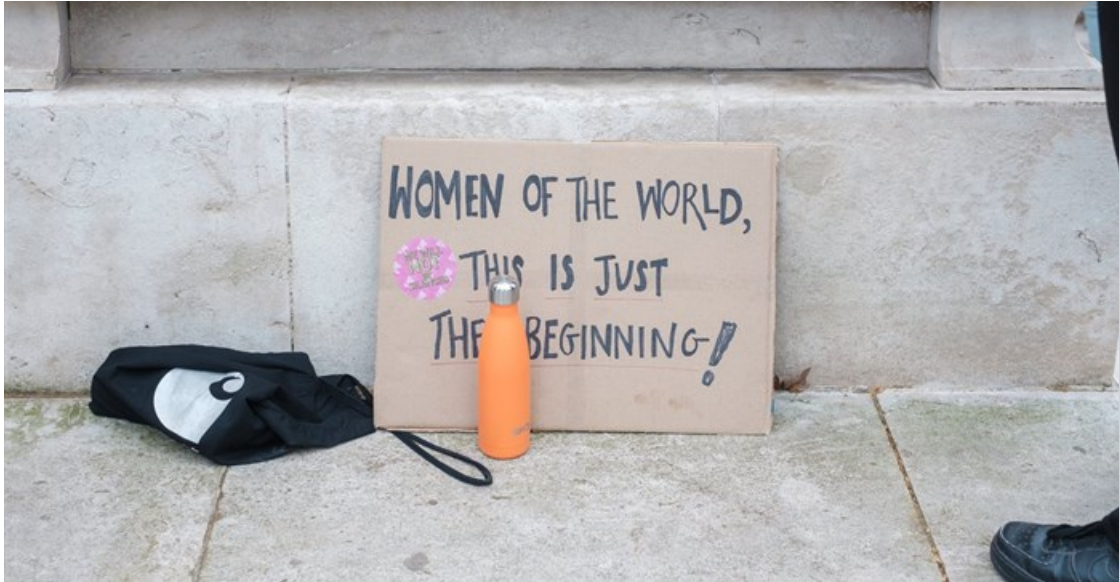 WOMEN OF THE WORLD,
THIS IS JUST
THE BEGINNING!